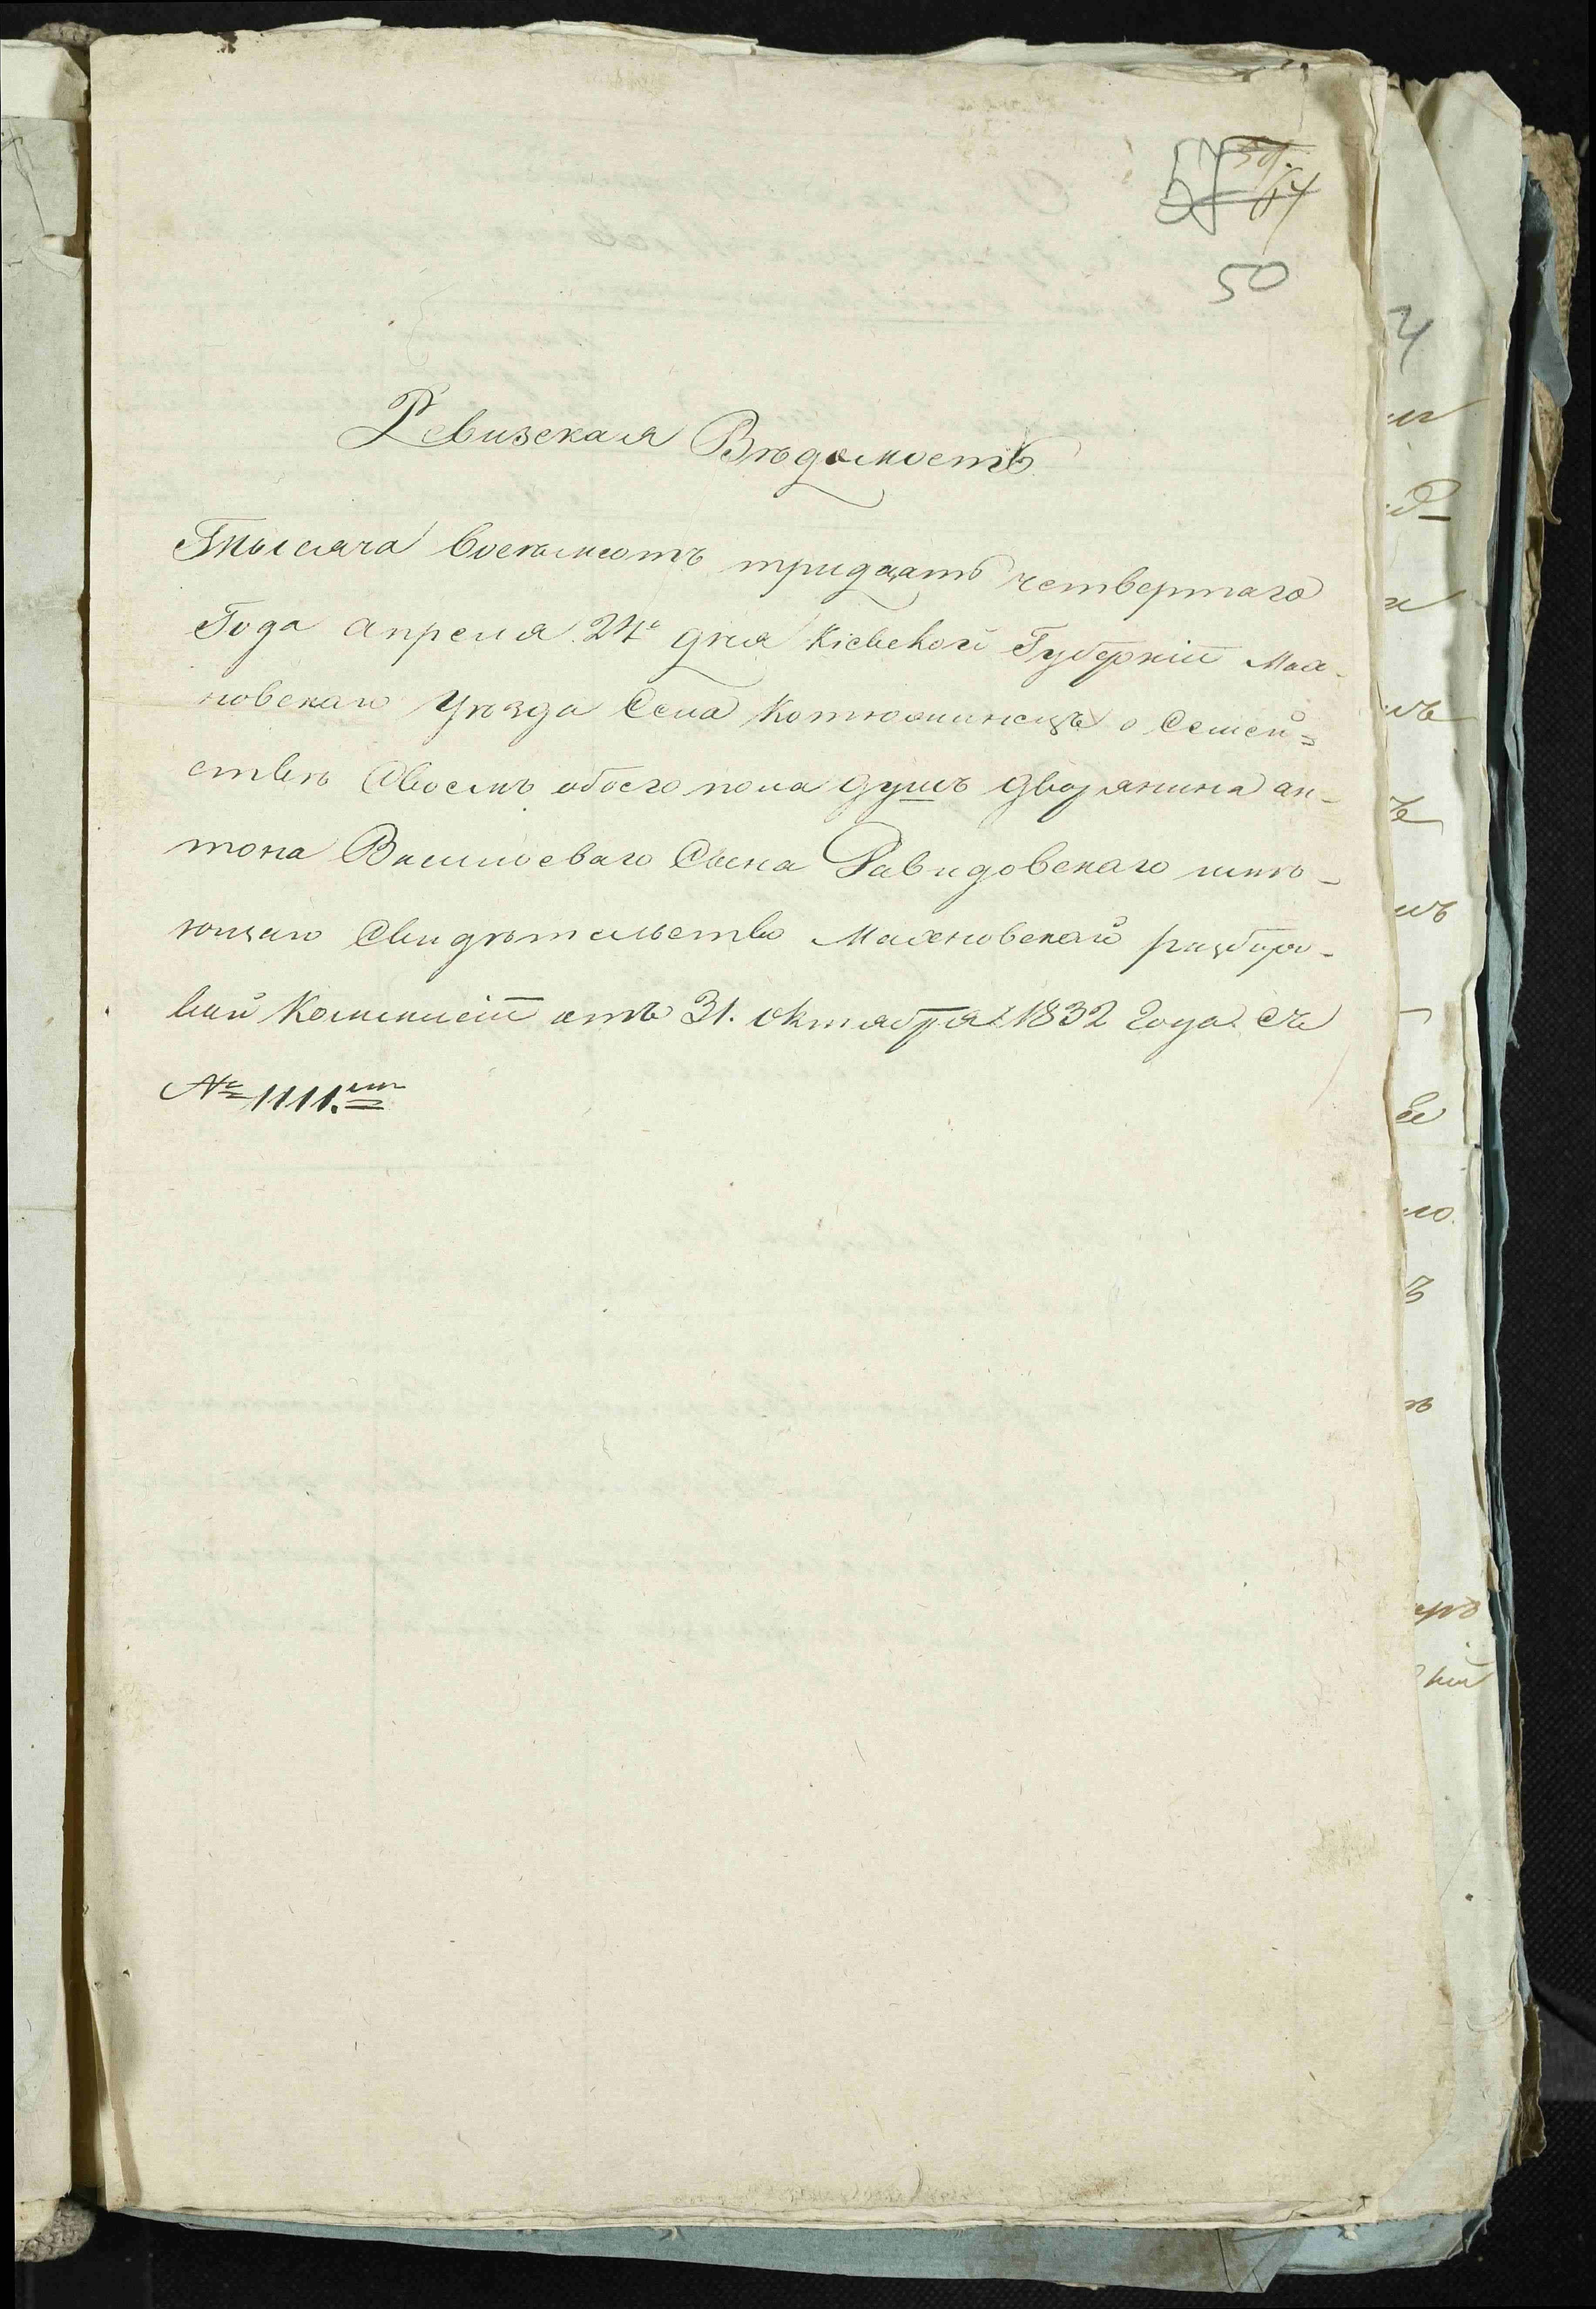 50
Ревизская Вѣдомость
Тысяча восемьсотъ тридцать четвертаго
Года апреля 24º дня Кіевской Губерніи Мах-
новскаго Уѣзда Села Котюжинецъ о Семей-
ствѣ Своемъ обоего пола душъ дворянина ан-
тона Васильеваго Сына Равидовскаго имѣ-
ющаго Свидѣтельство Махновской разборо-
вой Коммисіи отъ 31. октября 1832 года съ
№ 1111.